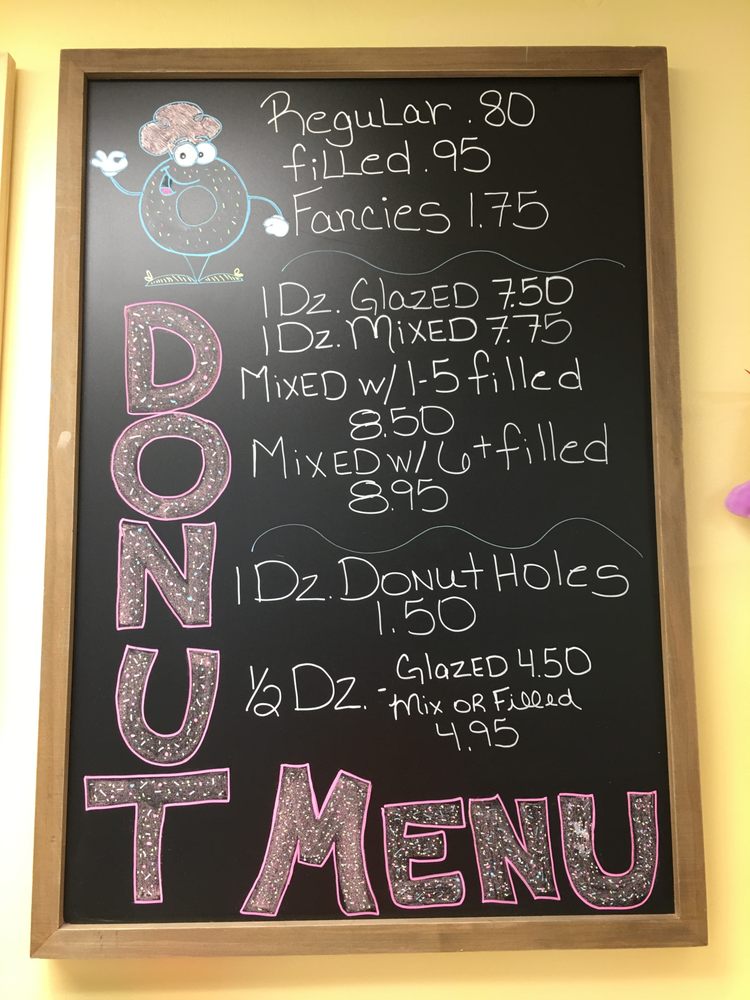 Regular .80
filled .95
Fancies 1.75
1 Dz. Glazed 7.50
1 Dz. Mixed 7.75
Mixed w/ 1-5 filled
8.50
Mixed w/ 6+ filled
8.95
1 Dz. Donut Holes
1.50
1/2 Dz. - Glazed 4.50
Mix or Filled
4.95
DONUT
MENU